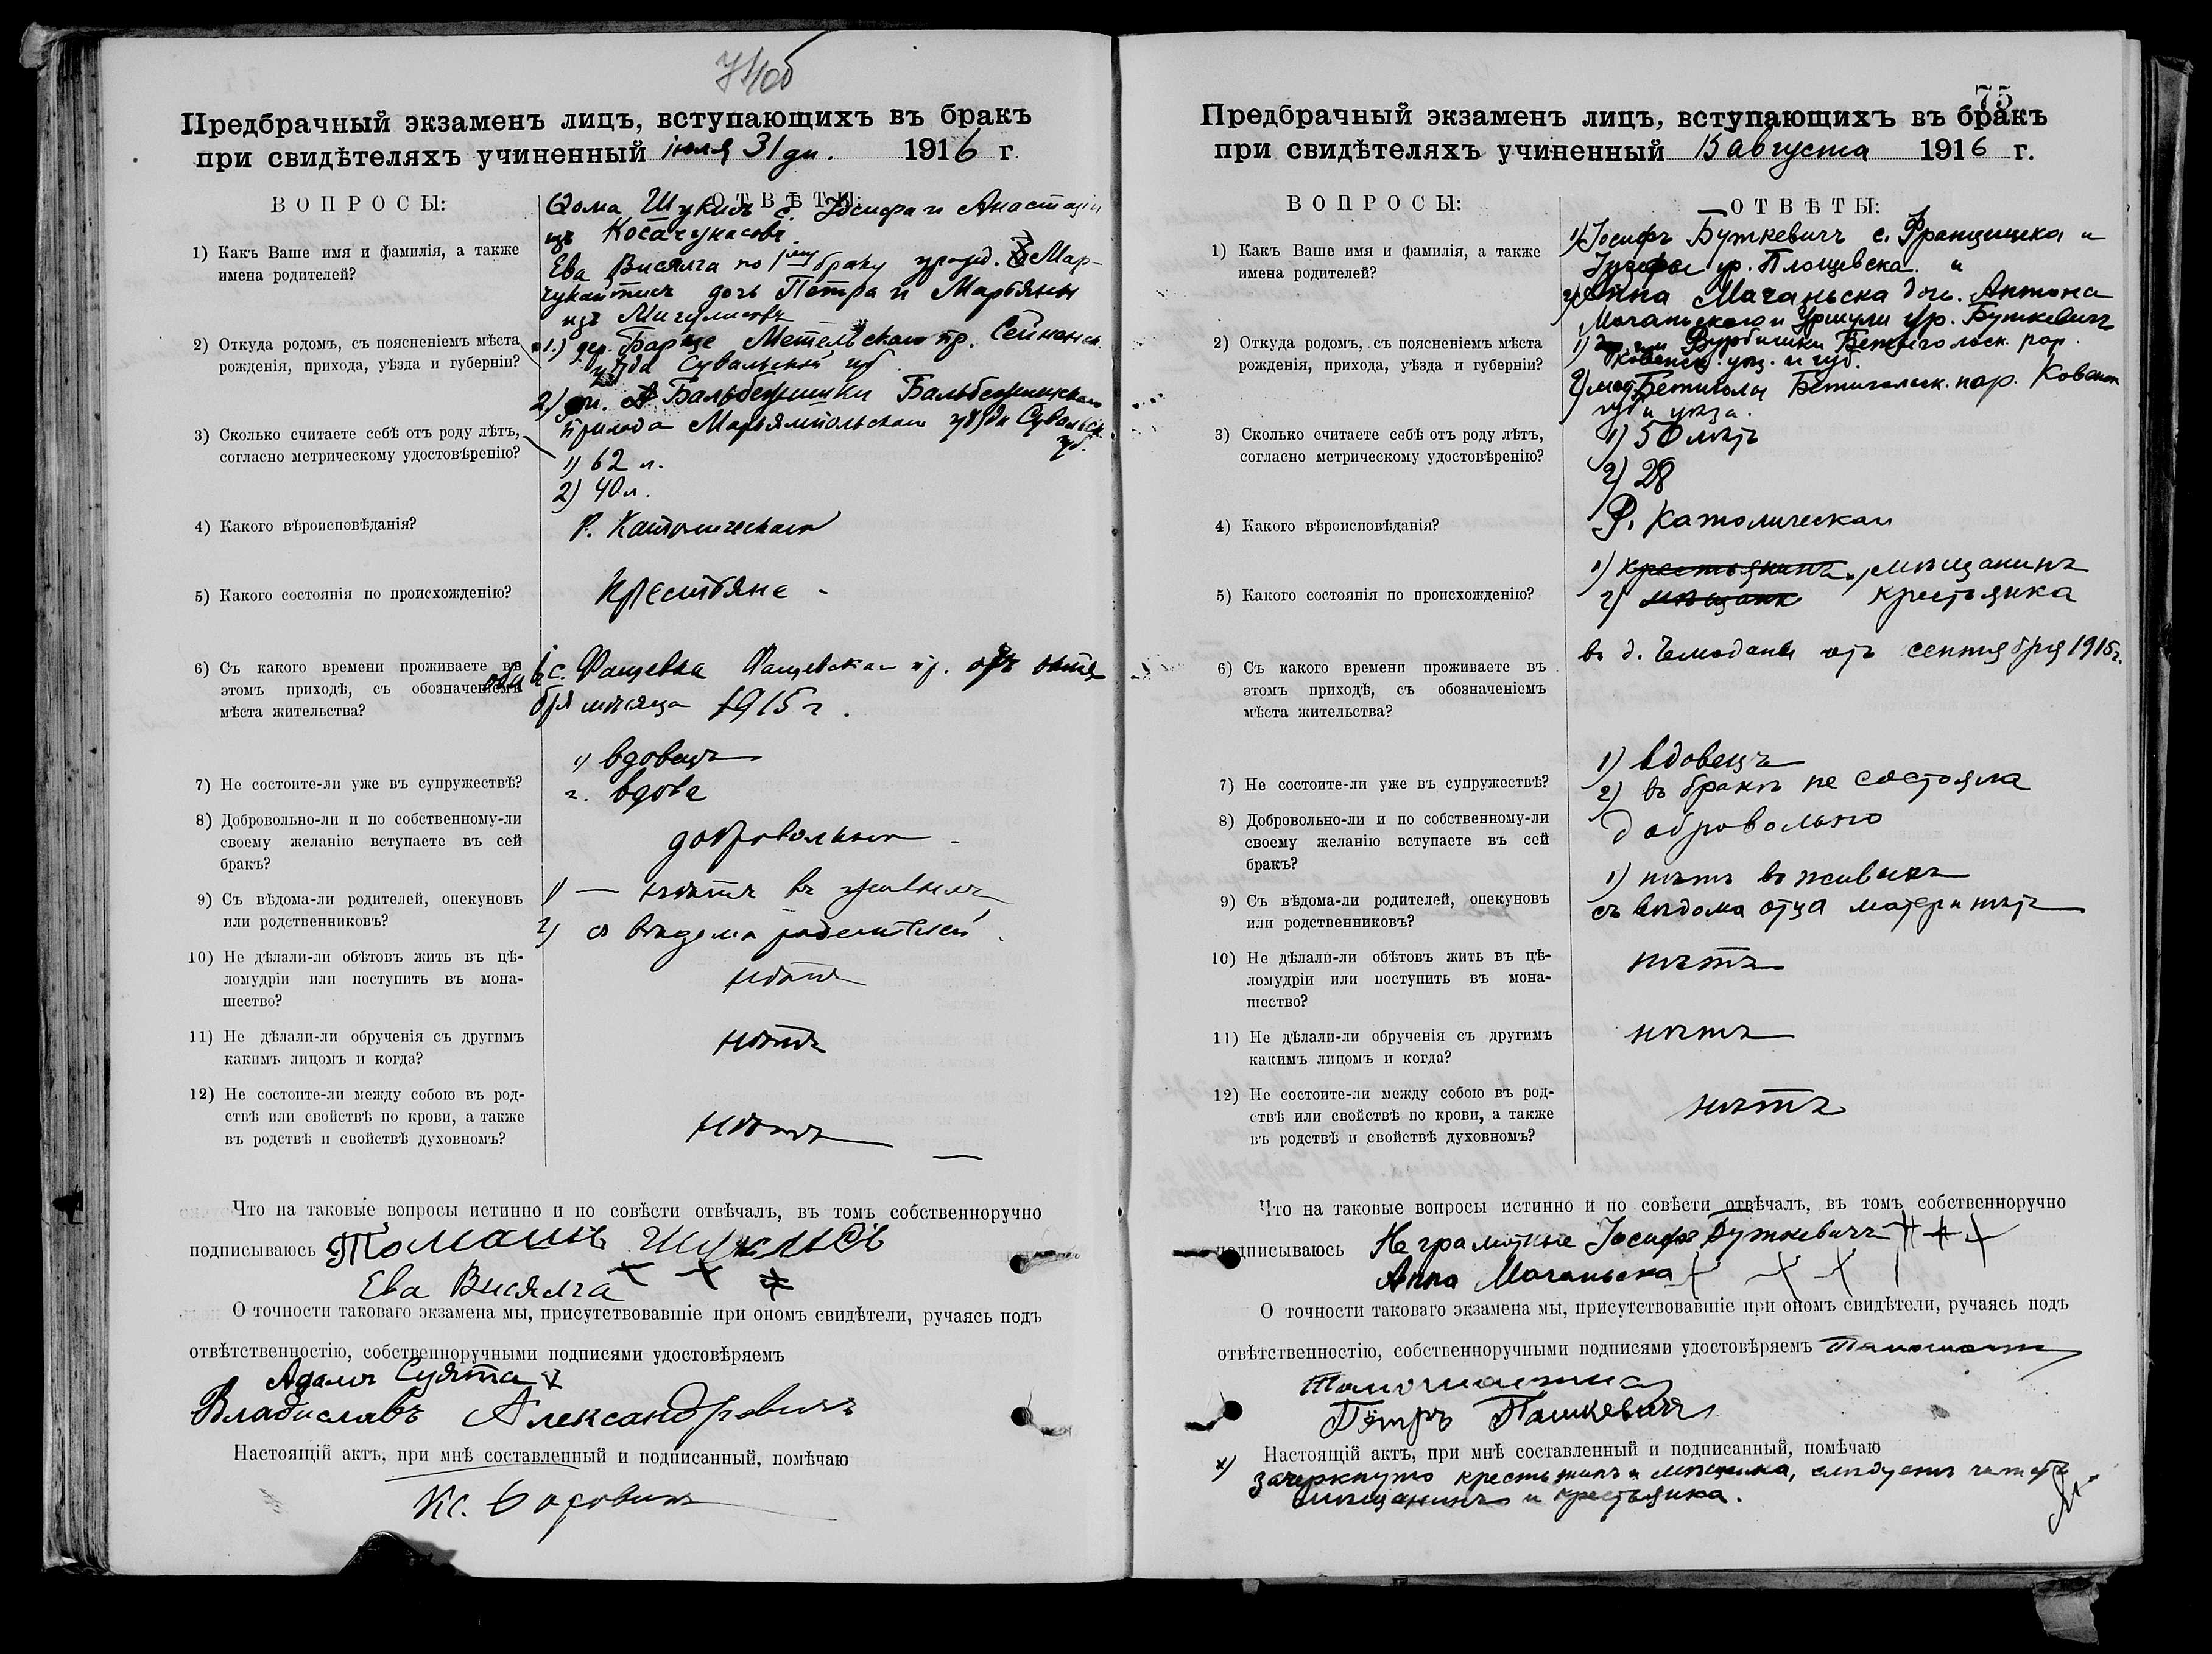 74об
Предбрачный экзаменъ лицъ, вступающихъ въ бракъ
при свидѣтеляхъ учиненный іюля 31 дн. 1916 г.
ВОПРОСЫ:
ОТВѢТЫ:
1) Какъ Ваше имя и фамилія, а также
имена родителей?
Ѳома Шукисъ с. Іосифа и Анастасіи
изъ
Ева Висялга по браку урожд. Мар-
чукайтисъ дочь Петра и Марьяны
изъ
2) Откуда родомъ, съ поясненіемъ мѣста
рожденія, прихода, уѣзда и губерніи?
1.) дер. Метельскаго пр. Сейненск.
уѣзда Сувальской губ.
2) Бальбержишки Бальбержишскаго
прихода Марьямпольскаго уѣзда Сувальск.
губ.
3) Сколько считаете себѣ отъ роду лѣтъ,
согласно метрическому удостовѣренію?
1) 62 л.
2) 40 л.
4) Какого вѣроисповѣданія?
Р. Католическаго
5) Какого состоянія по происхожденію?
Крестьяне -
6) Съ какого времени проживаете въ
этомъ приходѣ, съ обозначеніемъ
мѣста жительства?
оба въ с. Фащевка Фащевскаго пр. отъ
бря мѣсяца 1915 г.
7) Не состоите-ли уже въ супружествѣ?
1) вдовецъ
2. вдова
8) Добровольно-ли и по собственному-ли
своему желанію вступаете въ сей
бракъ?
добровольно -
9) Съ вѣдома-ли родителей, опекуновъ
или родственниковъ?
1) — нѣтъ въ живыхъ
2) съ вѣдома родителей.
10) Не дѣлали-ли обѣтовъ жить въ цѣ-
ломудріи или поступить въ мона-
шество?
нѣтъ
11) Не дѣлали-ли обрученія съ другимъ
какимъ лицомъ и когда?
нѣтъ
12) Не состоите-ли между собою въ род-
ствѣ или свойствѣ по крови, а также
въ родствѣ и свойствѣ духовномъ?
нѣтъ
Что на таковые вопросы истинно и по совѣсти отвѣчалъ, въ томъ собственноручно
подписываюсь Томашъ
Ева Висялга + + +
О точности таковаго экзамена мы, присутствовавшіе при ономъ свидѣтели, ручаясь подъ
отвѣтственностію, собственноручными подписями удостовѣряемъ
Адамъ
Владиславъ Александровичъ
Настоящій актъ, при мнѣ составленный и подписанный, помѣчаю
Кс.
75
Предбрачный экзаменъ лицъ, вступающихъ въ бракъ
при свидѣтеляхъ учиненный 15 августа 1916 г.
ВОПРОСЫ:
ОТВѢТЫ:
1) Какъ Ваше имя и фамилія, а также
имена родителей?
1) Іосифъ Буткевичъ с. Францишка и
Іузефы ур. Площевска и
2) Анна Мачаньска дочь Антона
Мачаньскаго и Уршули ур. Буткевичъ
2) Откуда родомъ, съ поясненіемъ мѣста
рожденія, прихода, уѣзда и губерніи?
1) Бетигольск. пар.
Ковенск. уѣз. и губ.
2) мѣст. Бетиголы Бетигольск. пар. Ковенск
губ и уѣзда.
3) Сколько считаете себѣ отъ роду лѣтъ,
согласно метрическому удостовѣренію?
1) 50 лѣтъ
2) 28
4) Какого вѣроисповѣданія?
Р. Католическаго
5) Какого состоянія по происхожденію?
1) крестьянинъ мѣщанинъ
2) мѣщанк крестьянка
6) Съ какого времени проживаете въ
этомъ приходѣ, съ обозначеніемъ
мѣста жительства?
въ д. Чемоданы отъ сентября 1915 г.
7) Не состоите-ли уже въ супружествѣ?
1) вдовецъ
2) въ бракѣ не состояла
8) Добровольно-ли и по собственному-ли
своему желанію вступаете въ сей
бракъ?
добровольно
9) Съ вѣдома-ли родителей, опекуновъ
или родственниковъ?
1) нѣтъ въ живыхъ
съ вѣдома отца матери нѣтъ
10) Не дѣлали-ли обѣтовъ жить въ цѣ-
ломудріи или поступить въ мона-
шество?
нѣтъ
11) Не дѣлали-ли обрученія съ другимъ
какимъ лицомъ и когда?
нѣтъ
12) Не состоите-ли между собою въ род-
ствѣ или свойствѣ по крови, а также
въ родствѣ и свойствѣ духовномъ?
нѣтъ
Что на таковые вопросы истинно и по совѣсти отвѣчалъ, въ томъ собственноручно
подписываюсь Неграмотные Іосифъ Буткевичъ + + +
Анна Мачаньска + + +
О точности таковаго экзамена мы, присутствовавшіе при ономъ свидѣтели, ручаясь подъ
отвѣтственностію, собственноручными подписями удостовѣряемъ
Петръ Пашкевичъ
Настоящій актъ, при мнѣ составленный и подписанный, помѣчаю
x) Зачеркнуто крестьянинъ и мѣщанка, слѣдуетъ читать
мѣщанинъ и крестьянка.